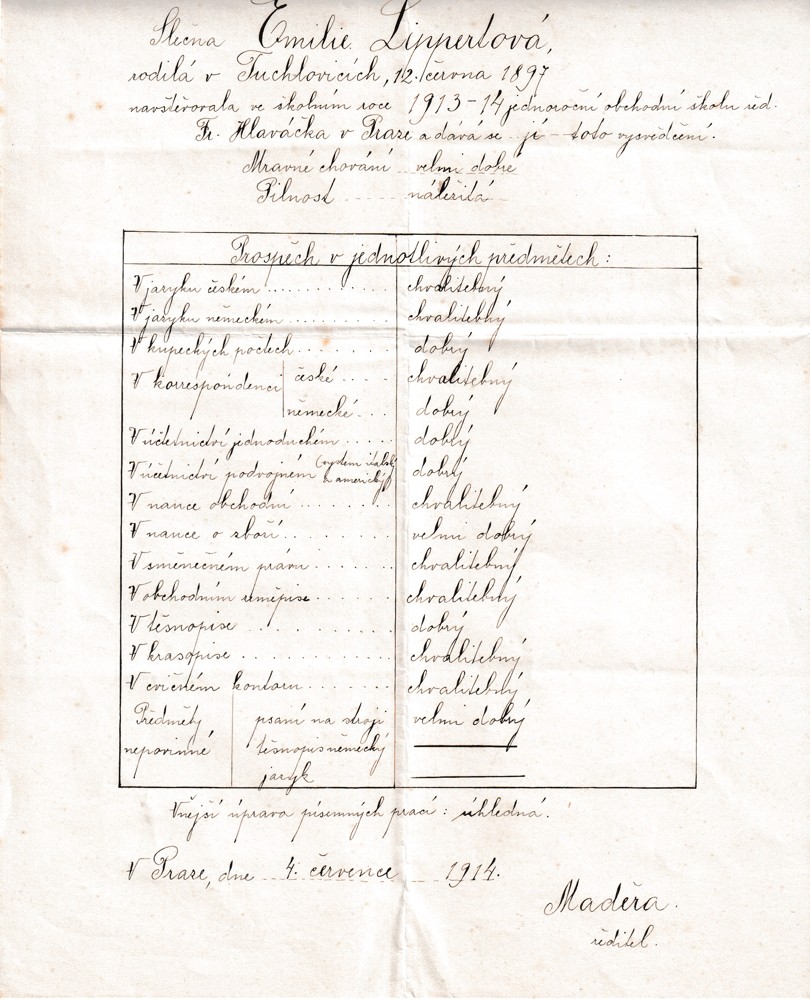 Slečna Emilie Lippertová,
rodilá v Tuchlovicích, 12. června 1897
navštěvovala ve školním roce 1913-14 jednoroční obchodní školu řed.
Fr. Hlaváčka v Praze a dává se jí toto vysvědčení.
Mravné chování velmi dobré
Pilnost náležitá
Prospěch v jednotlivých předmětech:
V jazyku českém chvalitebný
V jazyku německém chvalitebný
V kupeckých počtech dobrý
V korrespondenci české chvalitebný
německé dobrý
V účetnictví jednoduchém dobrý
V účetnictví podvojném (systém italský a americký) dobrý
V nauce obchodní chvalitebný
V nauce o zboží velmi dobrý
V směnečném právu chvalitebný
V obchodním zeměpise chvalitebný
V těsnopise dobrý
V krasopise chvalitebný
V cvičném kontoru chvalitebný
Předměty psaní na stroji velmi dobrý
nepovinné těsnopis německý
jazyk
Vnější úprava písemných prací: úhledná.
V Praze, dne 4. července 1914.
Maděra.
ředitel.